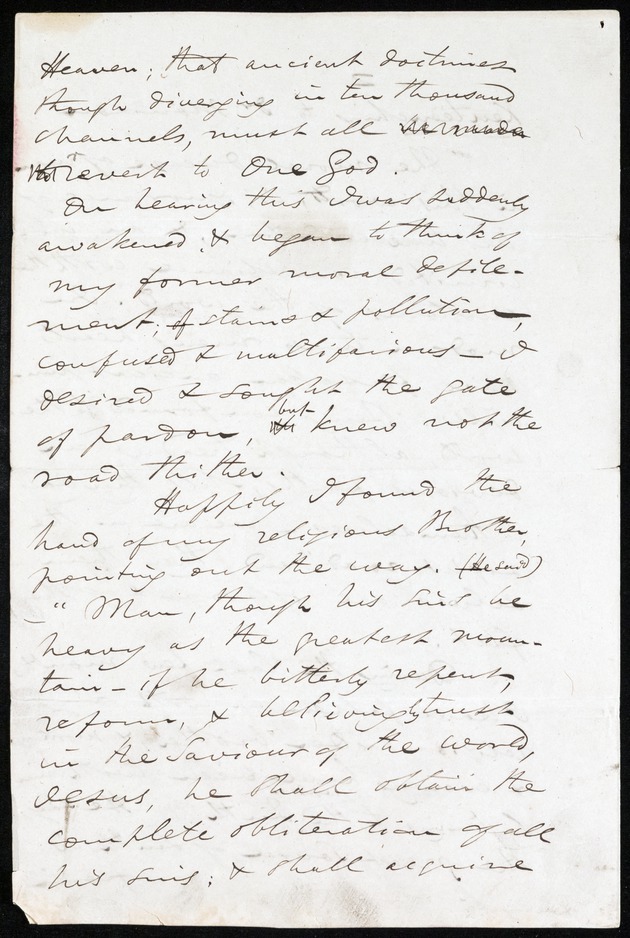 Heaven; that ancient doctrines
though diverging in ten thousand
channels, must all
revert to One God.
On hearing this I was suddenly
awakened, & began to think of
my former moral defile-
ment; of stains & pollution,
confused & multifarious - I
desired & sought the gate
of pardon, but knew not the
road thither.
Happily I found the
hand of my religious Brother,
pointing out the way. (He said)
"Man, though his sins be
heavy as the greatest moun-
tain - if he bitterly repent,
reform, & believingly trust
in the Saviour of the world,
Jesus, he shall obtain the
complete obliteration of all
his sins; & shall acquire